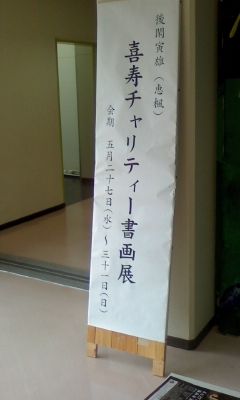 後閑寅雄（恵楓）
喜寿チャリティー書画展
会期　五月二十七日（水）～三十一日（日）